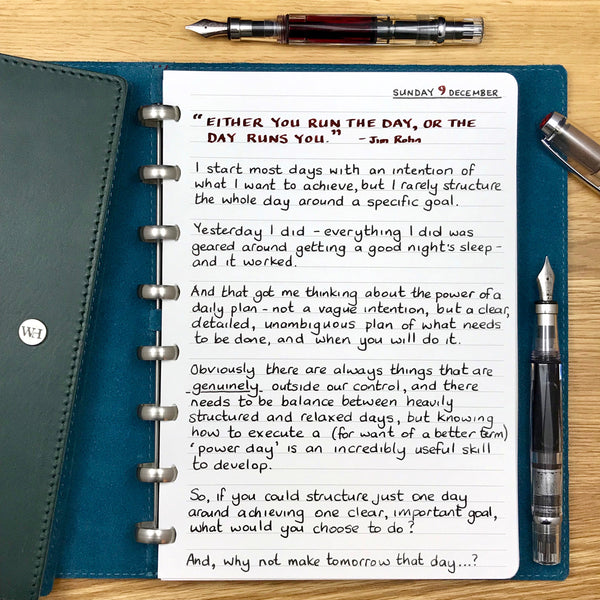 SUNDAY 9 DECEMBER
"EITHER YOU RUN THE DAY, OR THE
DAY RUNS YOU." - Jim Rohn
I start most days with an intention of
what I want to achieve, but I rarely structure
the whole day around a specific goal.
Yesterday I did - everything I did was
geared around getting a good night's sleep -
and it worked.
And that got me thinking about the power of a
daily plan - not a vague intention, but a clear,
detailed, unambiguous plan of what needs
to be done, and when you will do it.
Obviously there are always things that are
genuinely outside our control, and there
needs to be balance between heavily
structured and relaxed days, but knowing
how to execute a (for want of a better term)
'power day' is an incredibly useful skill
to develop.
So, if you could structure just one day
around achieving one clear, important goal,
what would you choose to do?
And, why not make tomorrow that day...?
WH